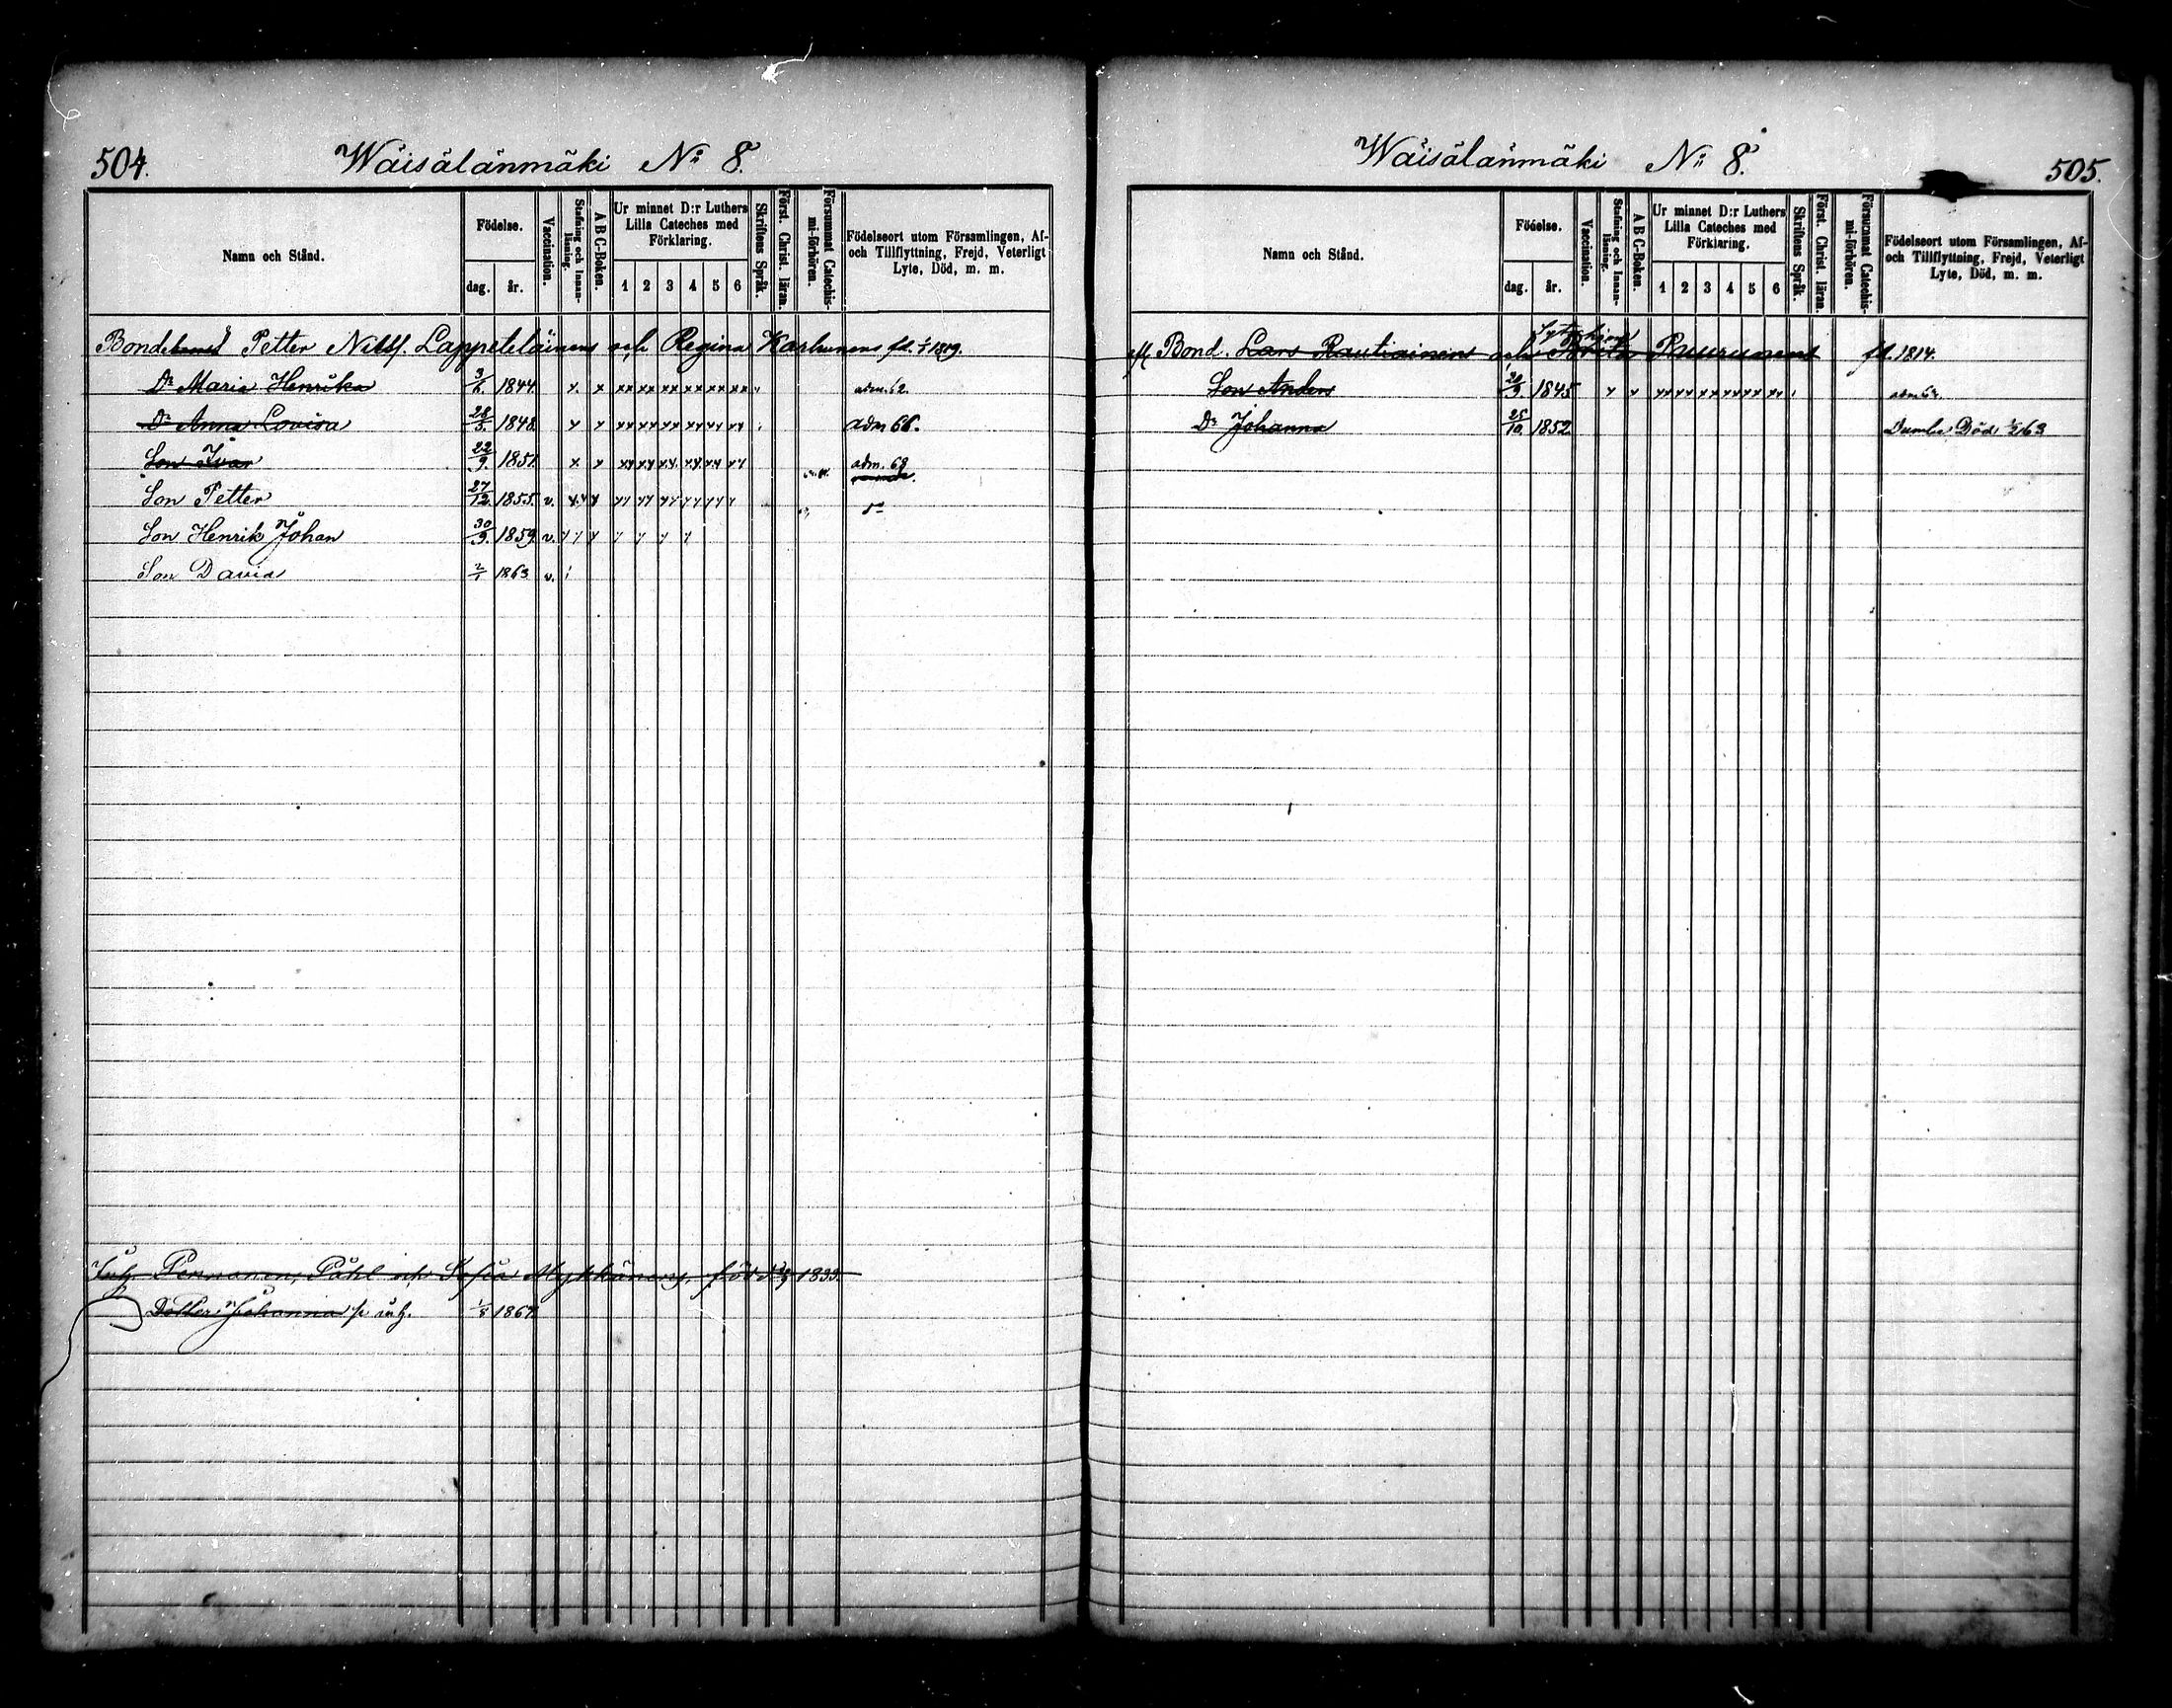 504.
Wäisälänmäki No 8.
Namn och Stånd.
Födelse.
dag.
år.
Vaccination.
Stafning och Innan-läsning.
A B C-Boken.
Ur minnet D:r Luthers Lilla Cateches med Förklaring.
1 2 3 4 5 6
Skriftens Språk.
Först. Christ. läran.
Försummat Catechis-mi-förhören.
Födelseort utom Församlingen, Af-
och Tillflyttning, Frejd, Veterligt
Lyte, Död, m. m.
Petter Nilsf. Lappeteläinens och Regina Karhunens fd. 1819.
Dr Maria Henrika 3/6. 1844. x. x xx xx xx xx xx xx adm. 62.
Dr Anna Lovisa 28/5 1848. x x xx xx xx xx xx xx adm 66.
Son Ivar 22/9. 1851. x x xx xx xx xx xx xx adm. 69
Son Petter 27/12 1855. v.
Son Henrik Johan 30/9. 1859 v.
Son David 2/1 1863 v.
Inh. Pennanen, Påhl och Sofia Mykkänens, född 1833.
Dotter Johanna 1/5 1867.
Wäisälänmäki No 8.
505.
Namn och Stånd.
Födelse.
dag.
år.
Vaccination.
Stafning och Innan-läsning.
A B C-Boken.
Ur minnet D:r Luthers Lilla Cateches med Förklaring.
1 2 3 4 5 6
Skriftens Språk.
Först. Christ. läran.
Försummat Catechis-mi-förhören.
Födelseort utom Församlingen, Af-
och Tillflyttning, Frejd, Veterligt
Lyte, Död, m. m.
Bond. Lars Rautiainens och Brita Puurunens fd. 1814.
Son Anders 20/9. 1845
Dr Johanna 25/10. 1852. Död 63